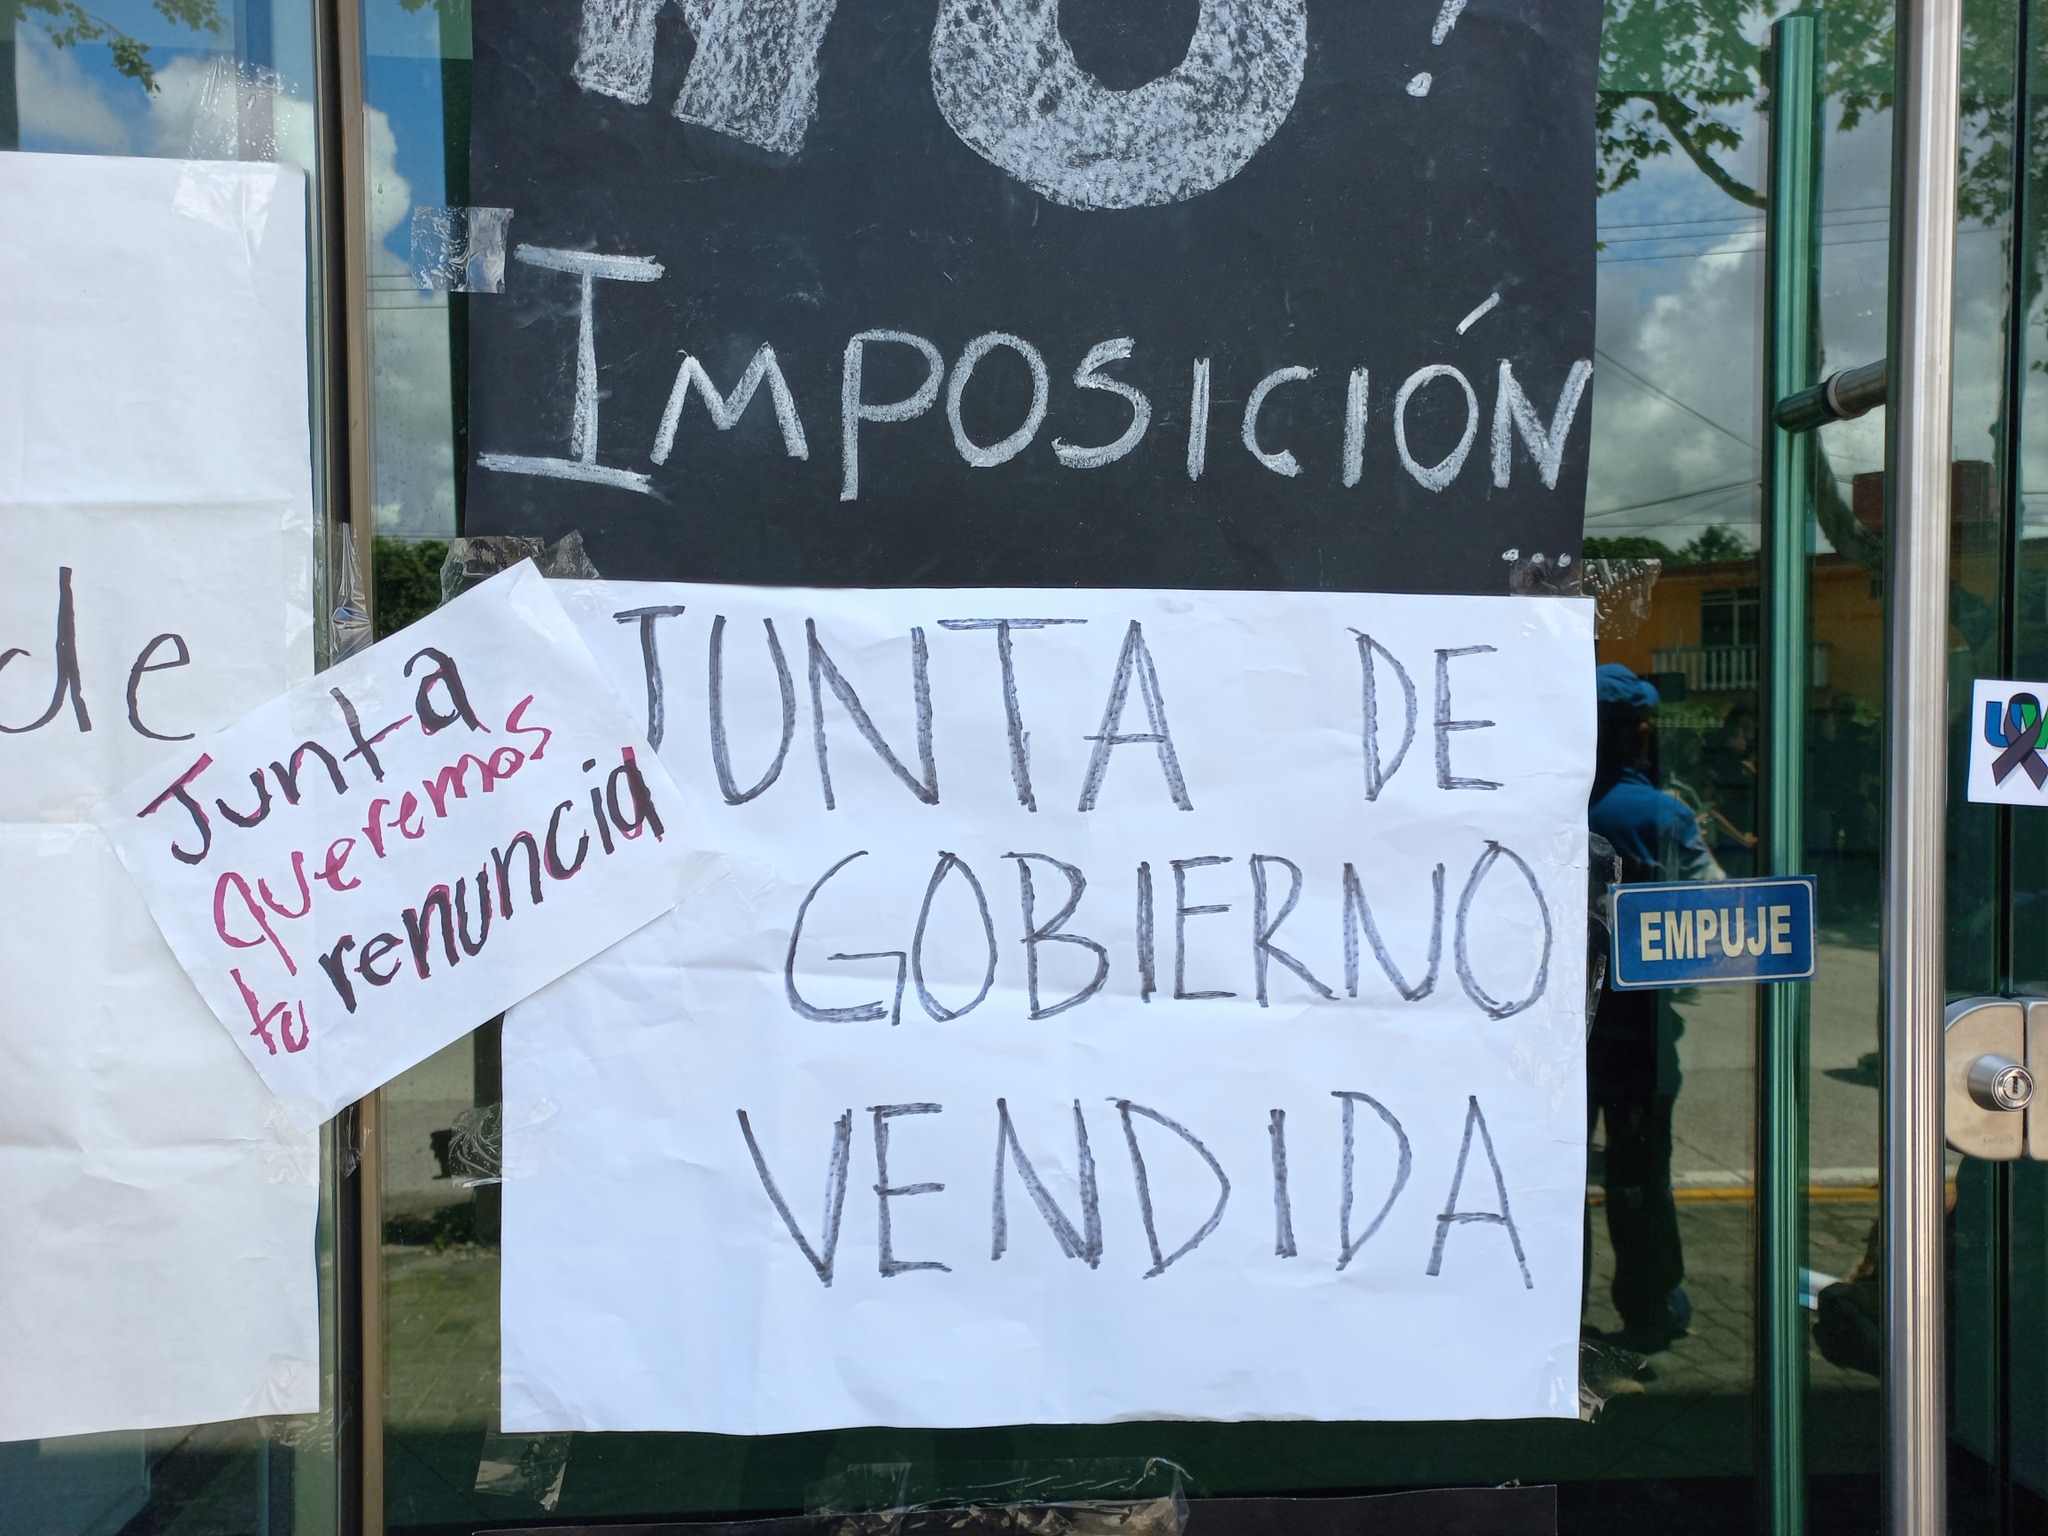 NO!
IMPOSICIÓN
...
de
Junta
queremos
tu renuncia
JUNTA DE
GOBIERNO
VENDIDA
EMPUJE